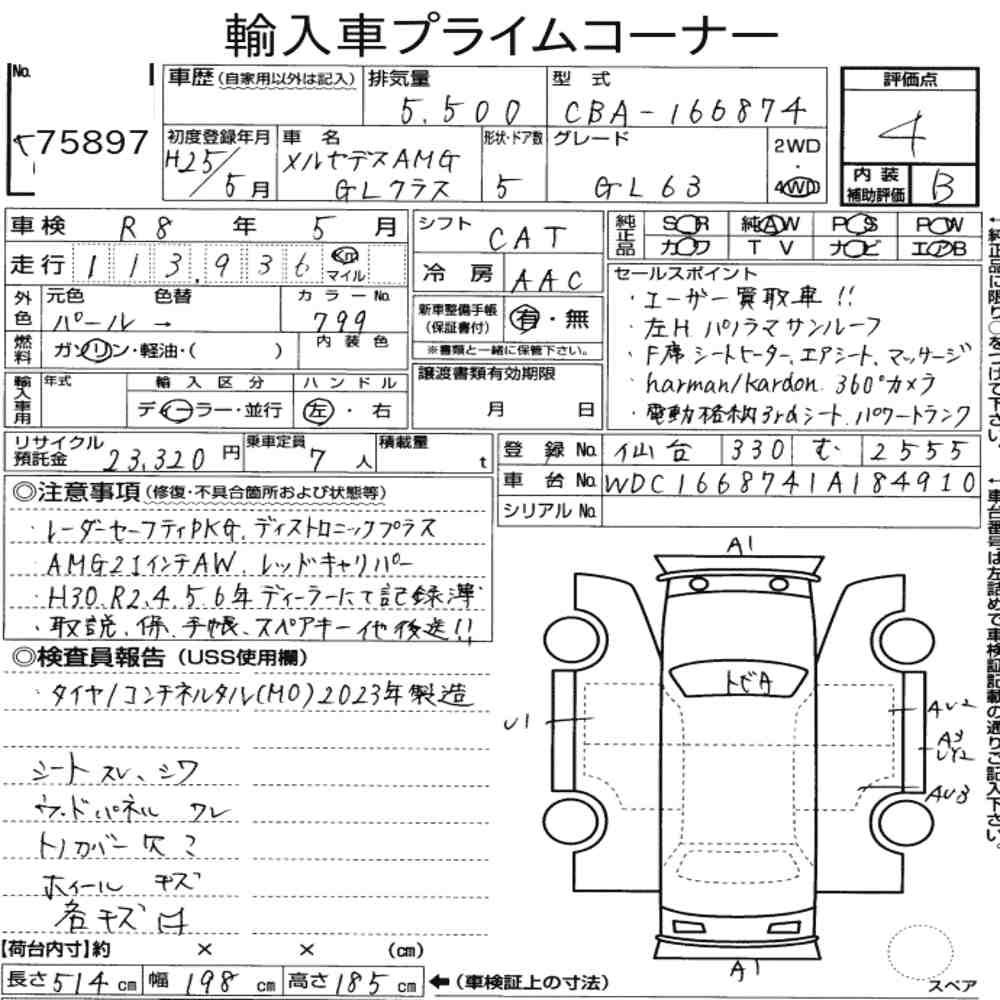 輸入車プライムコーナー
No.
75897
車歴(自家用以外は記入)
排気量
5,500
型式
CBA-166874
評価点
4
初度登録年月
H25/5月
車名
メルセデスAMG
GLクラス
形状・ドア数
5
グレード
GL63
2WD
・
4WD
内装
補助評価
B
車検 R8年 5月
走行 113,936 km
マイル
シフト
CAT
冷房 AAC
純正品
SR 純AW PS PW
カワ TV ナビ エアB
外色
元色 色替
パール →
カラーNo.
799
燃料
ガソリン・軽油・( )
内装色
新車整備手帳
(保証書付)
有・無
※書類と一緒に保管下さい。
輸入車用
年式
輸入区分
ディーラー・並行
ハンドル
左・右
譲渡書類有効期限
月 日
セールスポイント
・ユーザー買取車!!
・左H パノラマサンルーフ
・F席シートヒーター、エアシート、マッサージ
・harman/kardon. 360°カメラ
・電動格納3rdシート.パワートランク
←純正品に限り○をつけて下さい。
リサイクル
預託金 23,320円
乗車定員
7人
積載量
t
登録No. 仙台 330 む 2555
車台No. WDC1668741A184910
シリアルNo.
←車台番号は左詰めで車検証記載の通りご記入下さい。
◎注意事項(修復・不具合箇所および状態等)
・レーダーセーフティPKG、ディストロニックプラス
AMG21インチAW、レッドキャリパー
・H30.R2.4.5.6年ディーラーにて記録簿
・取説、保、手帳、スペアキー他後送!!
◎検査員報告(USS使用欄)
・タイヤ/コンチネルタル(MO)2023年製造
シートスレ、シワ
ウッドパネル ワレ
トノカバー欠?
ホイール キズ
各キズ凹
A1
トビA
U1
AU2
A3
UY2
AU3
A1
スペア
【荷台内寸】約 × × (cm)
長さ514cm 幅198cm 高さ185cm ←(車検証上の寸法)